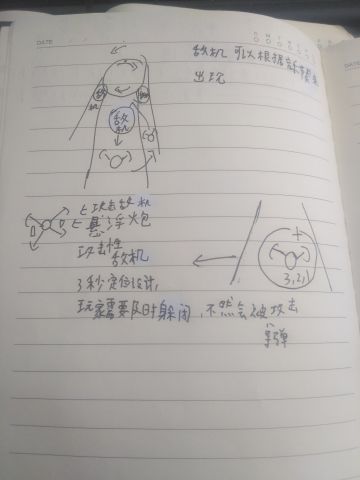 DATE
敌机可以根据
出现
敌
机
敌
机
攻击敌机
悬浮炮
攻击性
敌机
3秒定位设计,
3,2,1
玩家需要及时躲闭,不然会被攻击
导弹
DATE